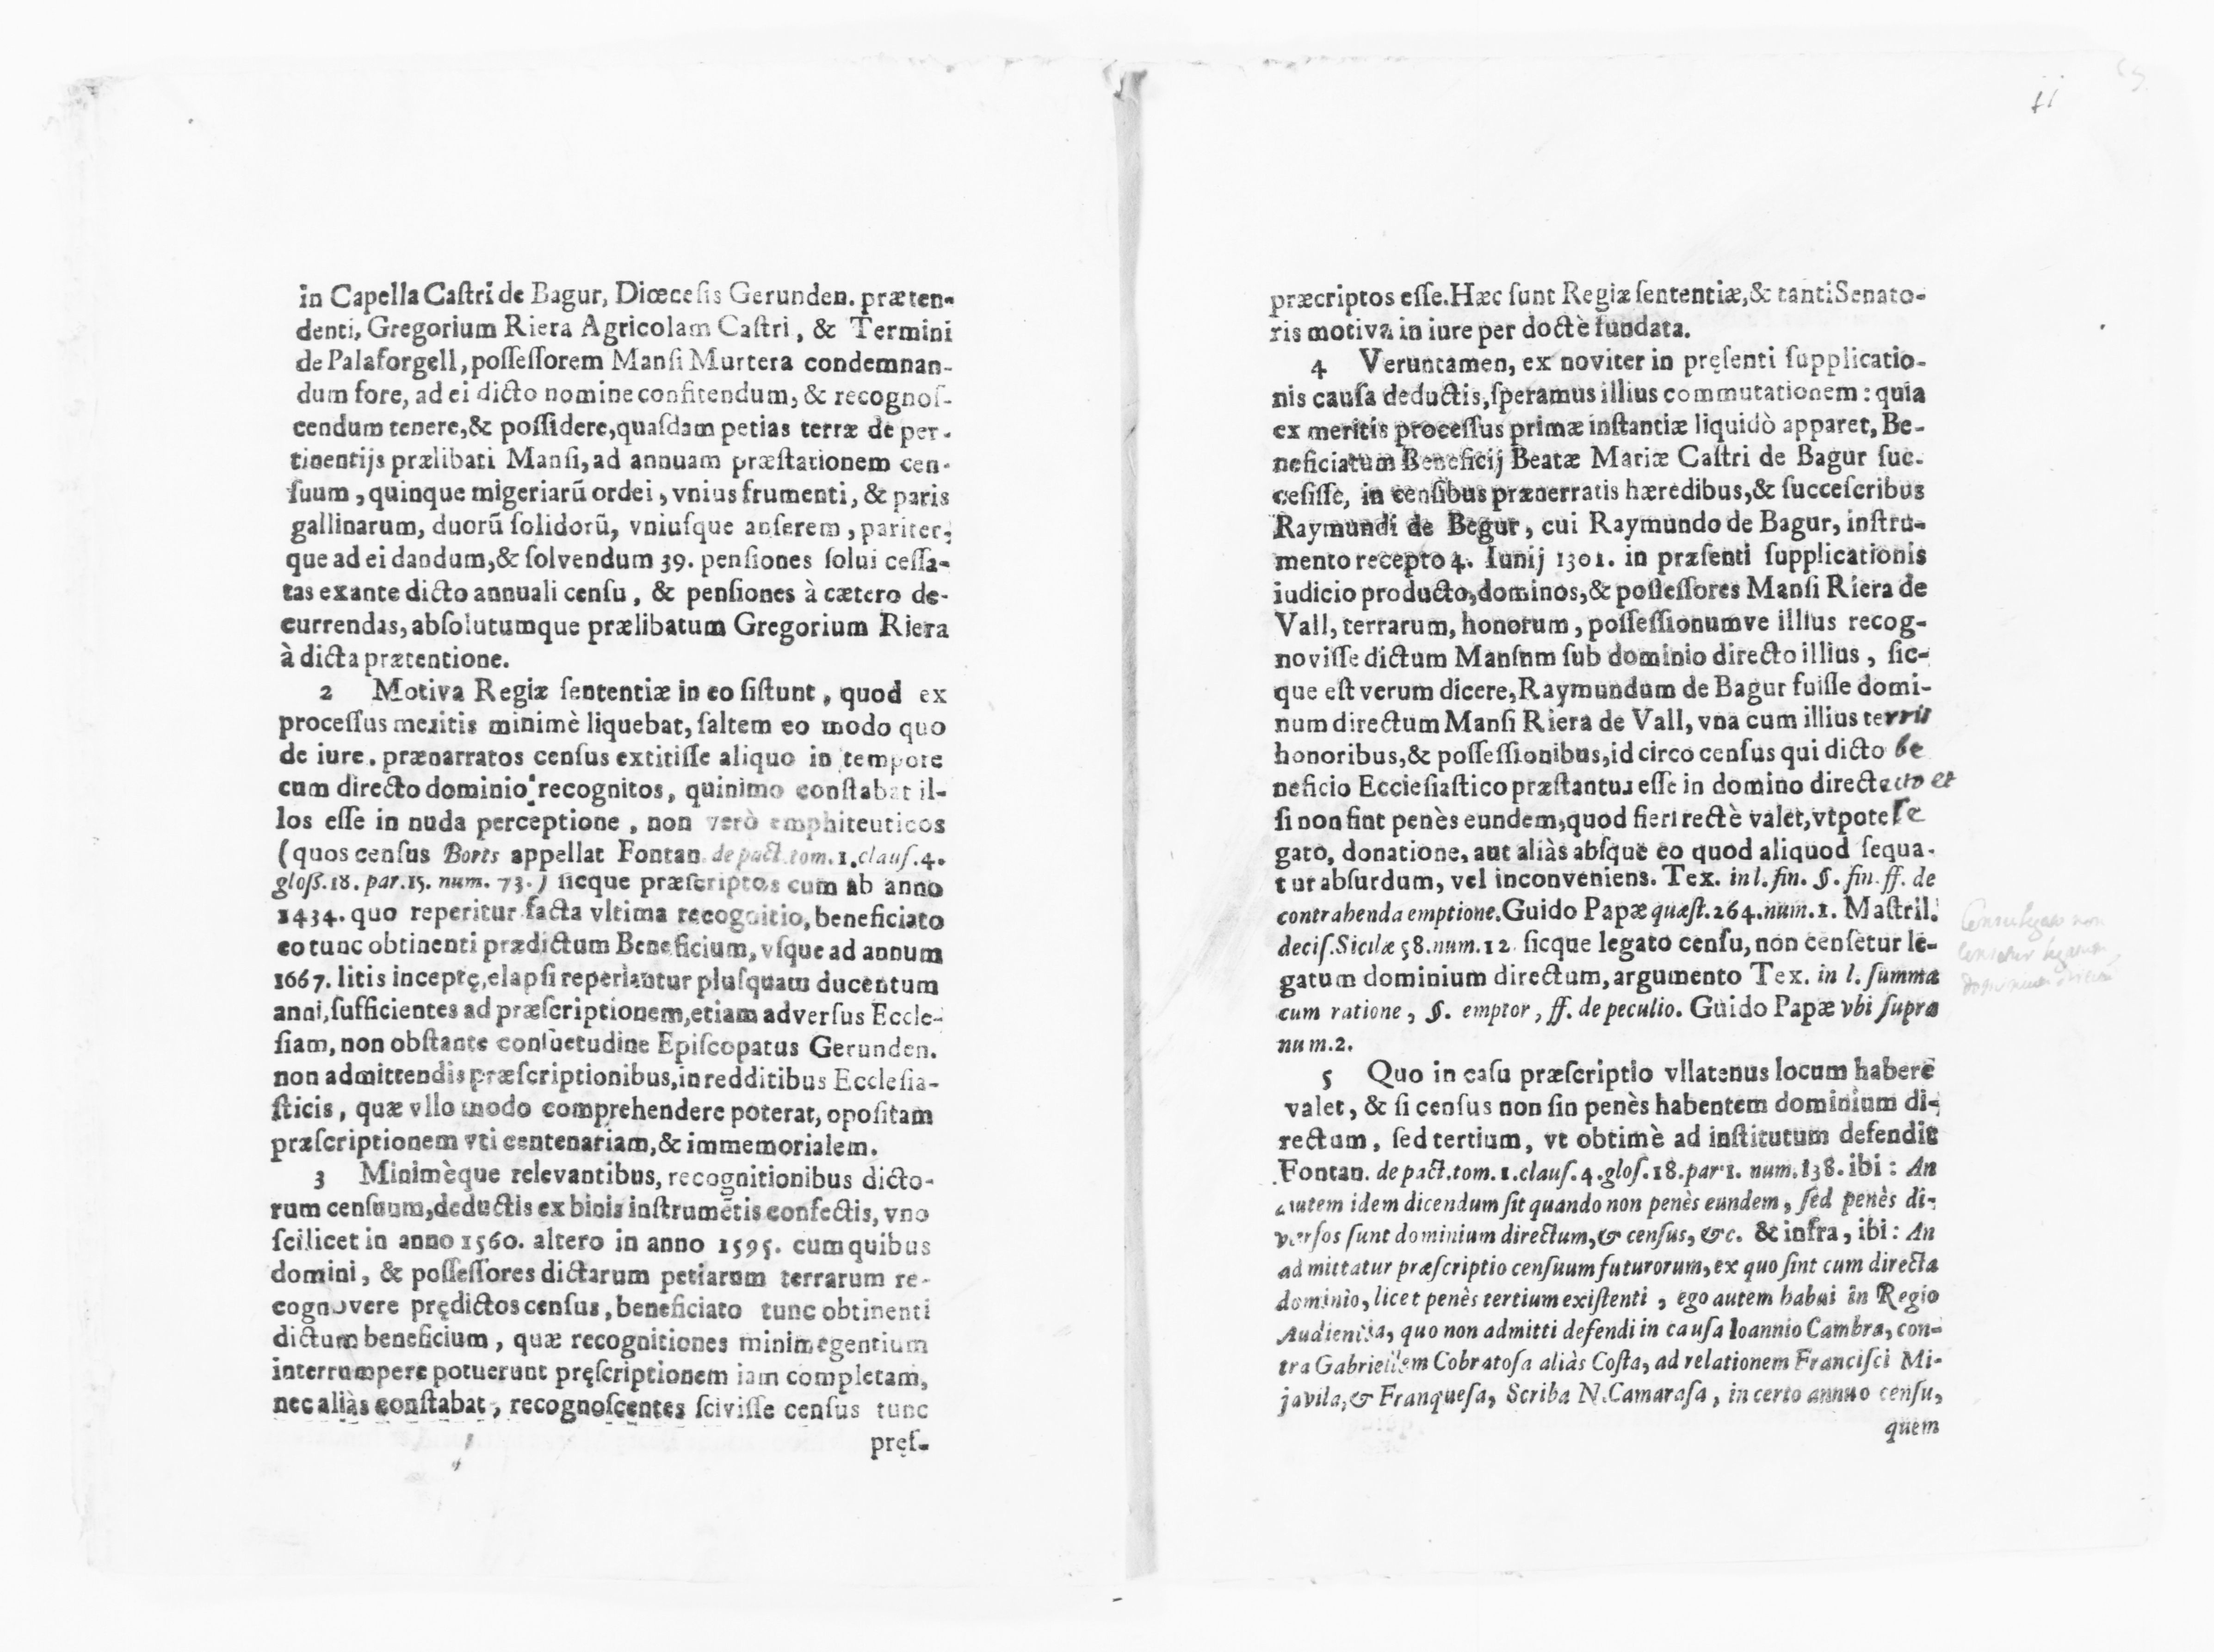 in Capella Caſtri de Bagur, Diœceſis Gerunden. præten-
denti, Gregorium Riera Agricolam Caſtri, & Termini
de Palaforgell, poſſeſſorem Manſi Murtera condemnan-
dum fore, ad ei dicto nomine confitendum, & recognoſ-
cendum tenere, & poſſidere, quaſdam petias terræ de per-
tinentijs prælibati Manſi, ad annuam præſtationem cen-
ſuum, quinque migeriarũ ordei, vnius frumenti, & paris
gallinarum, duorũ ſolidorũ, vniuſque anſerem, pariter,
que ad ei dandum, & ſolvendum 39. penſiones ſolui ceſſa-
tas exante dicto annuali cenſu, & penſiones à cætero de-
currendas, abſolutumque prælibatum Gregorium Riera
à dicta prætentione.
2 Motiva Regiæ ſententiæ in eo ſiſtunt, quod ex
proceſſus meritis minimè liquebat, ſaltem eo modo quo
de iure. prænarratos cenſus extitiſſe aliquo in tempore
cum directo dominio recognitos, quinimo conſtabat il-
los eſſe in nuda perceptione, non verò emphiteuticos
(quos cenſus Borts appellat Fontan de pact. tom. 1. clauſ. 4.
gloſſ. 18. par. 15. num. 73.) ſicque præſcriptos cum ab anno
1434. quo reperitur facta vltima recognitio, beneficiato
eo tunc obtinenti prædictum Beneficium, vſque ad annum
1667. litis inceptę, elapſi reperiantur pluſquam ducentum
anni, ſufficientes ad præſcriptionem, etiam adverſus Eccle-
ſiam, non obſtante conſuetudine Epiſcopatus Gerunden.
non admittendis præſcriptionibus, in redditibus Eccleſia-
ſticis, quæ vllo modo comprehendere poterat, opoſitam
præſcriptionem vti centenariam, & immemorialem.
3 Minimèque relevantibus, recognitionibus dicto-
rum cenſuum, deductis ex binis inſtrumẽtis confectis, vno
ſcilicet in anno 1560. altero in anno 1595. cum quibus
domini, & poſſeſſores dictarum petiarum terrarum re-
cognovere prędictos cenſus, beneficiato tunc obtinenti
dictum beneficium, quæ recognitiones minimegentium
interrumpere potuerunt pręſcriptionem iam completam,
nec aliàs conſtabat, recognoſcentes ſciviſſe cenſus tunc
pręſ-
præcriptos eſſe. Hæc ſunt Regiæ ſententiæ, & tanti Senato-
ris motiva in iure per doctè fundata.
4 Veruntamen, ex noviter in pręſenti ſupplicatio-
nis cauſa deductis, ſperamus illius commutationem: quia
ex meritis proceſſus primæ inſtantiæ liquidò apparet, Be-
neficiatum Beneficij Beatæ Mariæ Caſtri de Bagur ſuc-
ceſiſſe, in cenſibus prænerratis hæredibus, & ſucceſcribus
Raymundi de Begur, cui Raymundo de Bagur, inſtru-
mento recepto 4. Iunij 1301. in præſenti ſupplicationis
iudicio producto, dominos, & poſſeſſores Manſi Riera de
Vall, terrarum, honorum, poſſeſſionumve illius recog-
noviſſe dictum Manſnm ſub dominio directo illius, ſic-
que eſt verum dicere, Raymundum de Bagur fuiſſe domi-
num directum Manſi Riera de Vall, vna cum illius terris
honoribus, & poſſeſſionibus, id circo cenſus qui dicto be
neficio Eccleſiaſtico præſtantur eſſe in domino directo et
ſi non ſint penès eundem, quod fieri rectè valet, vtpote le
gato, donatione, aut aliàs abſque eo quod aliquod ſequa-
tur abſurdum, vel inconveniens. Tex. in l. fin. §. fin. ff. de
contrahenda emptione. Guido Papæ quæſt. 264. num. 1. Maſtril.
deciſ. Sicilæ 58. num. 12. ſicque legato cenſu, non cenſetur le-
gatum dominium directum, argumento Tex. in l. ſumma
cum ratione, §. emptor, ff. de peculio. Guido Papæ vbi ſupra
num. 2.
5 Quo in caſu præſcriptio vllatenus locum habere
valet, & ſi cenſus non ſin penès habentem dominium di-
rectum, ſed tertium, vt obtimè ad inſtitutum defendit
Fontan. de pact. tom. 1. clauſ. 4. gloſ. 18. par. 1. num. 138. ibi: An
autem idem dicendum ſit quando non penès eundem, ſed penès di-
verſos ſunt dominium directum, & cenſus, &c. & infra, ibi: An
admittatur præſcriptio cenſuum futurorum, ex quo ſint cum directa
dominio, licet penès tertium exiſtenti, ego autem habui in Regio
Audientia, quo non admitti defendi in cauſa Ioannio Cambra, con-
tra Gabrielem Cobratoſa aliàs Coſta, ad relationem Franciſci Mi-
javila, & Franqueſa, Scriba N. Camaraſa, in certo annuo cenſu,
quem